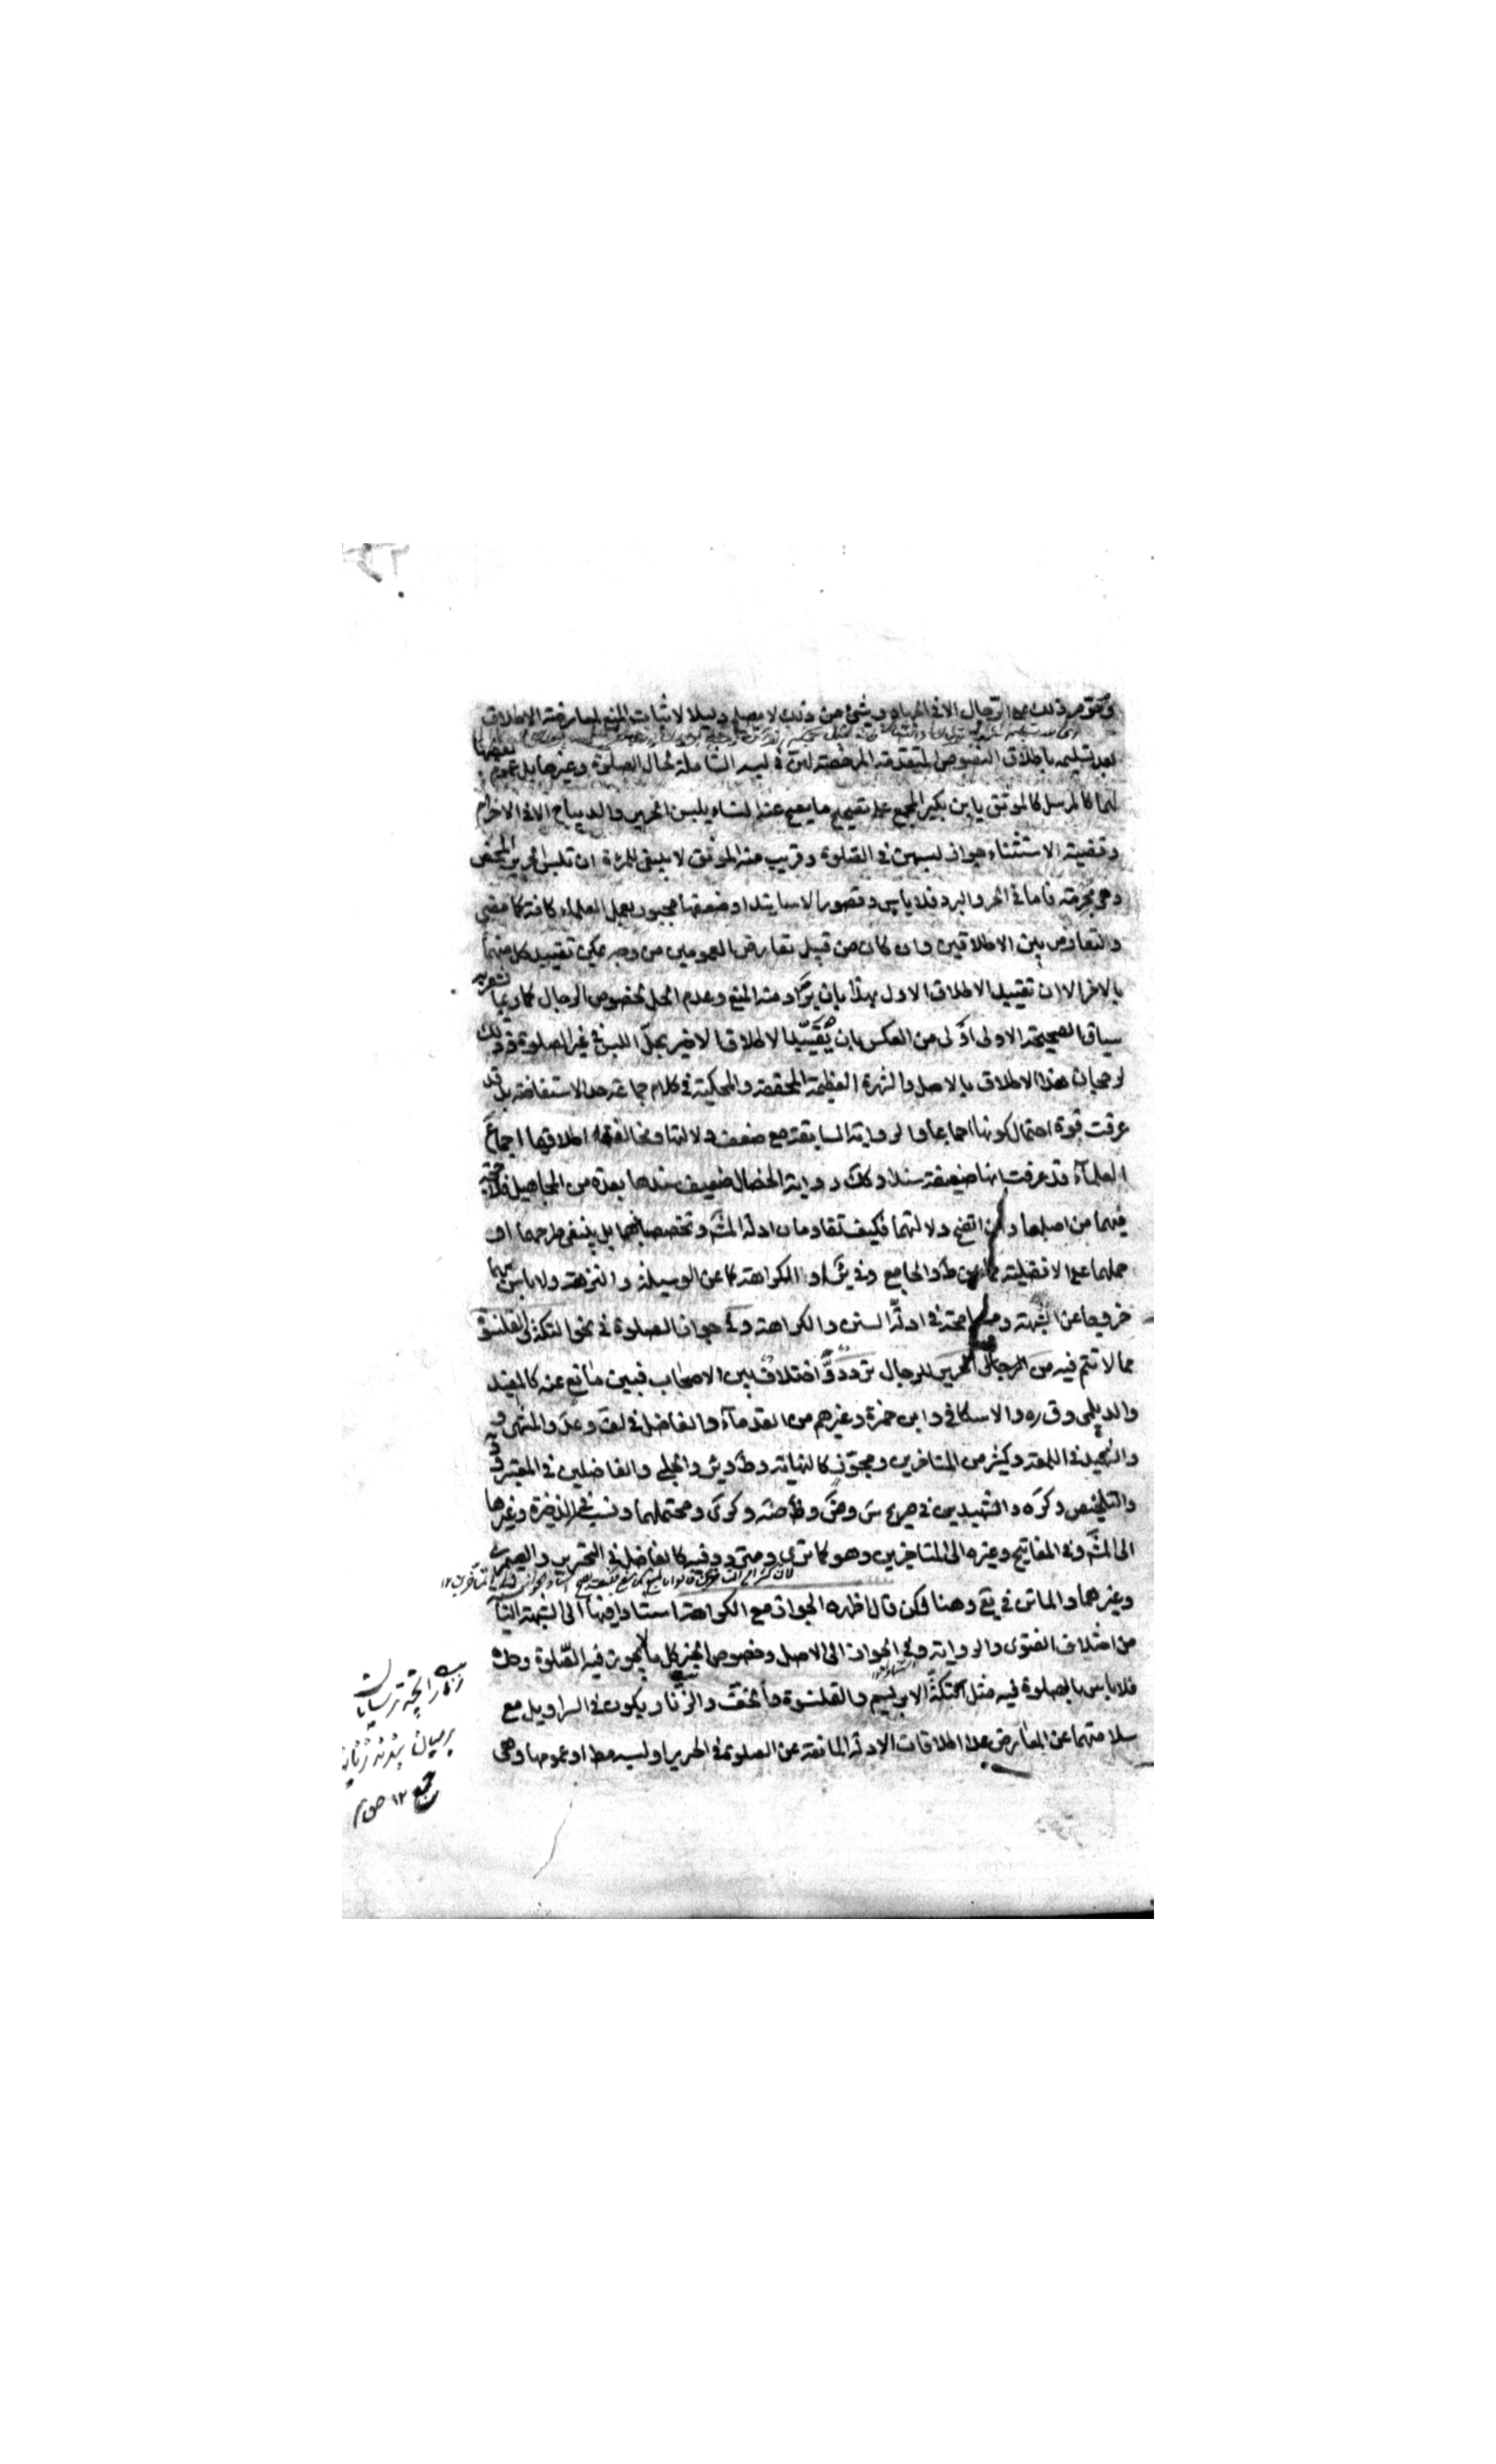 ويحرم ذلك على الرجال الا في الجهاد وشئ من ذلك لا يصلح دليلا لاثبات المنع لمعارضة الاطلاق
بعد تسليمه باطلاق النصوص المتقدمة المرخصة لهن في لبسه الشاملة لحال الصلوة وغيرها بل عموم بعضها
لهما كالمرسل كالموثق بابن بكير المجمع على تصحيح ما يصح عنه النساء يلبس الحرير والديباج الا في الاحرام
وقضية الاستثناء جواز لبسهن في الصلوة وقريب منه الموثق لا ينبغي للمرءة ان تلبس الحرير المحض
وهي محرمة فاما في الحر والبرد فلا باس وقصور الاسانيد او ضعفها مجبور بعمل العلماء كافة كما مضى
والتعارض بين الاطلاقين وان كان من قبيل تعارض العمومين من وجه يمكن تقييد كل منهما
بالاخر الا ان تقييد الاطلاق الاول بهذا بان يراد منه المنع وعدم الحل بخصوص الرجال كما ربما يشعر به
سياق الصحيحة الاولى اولى من العكس بان يقيد الاطلاق الاخير بحل اللبس في غير الصلوة وذلك
لرجحان هذا الاطلاق بالاصل والشهرة العظيمة المحققة والمحكية في كلام جماعة حد الاستفاضة بل قد
عرفت قوة احتمال كونها اجماعا والرواية السابقة مع ضعف دلالتها ومخالفة اطلاقها اجماع
العلمآء قد عرفت انها ضعيفة سندا وكذا رواية الخصال ضعيف سندها بعدة من المجاهيل فلا حجة
فيهما من اصلهما وان اتضح دلالتهما فكيف تقاومان ادلة المشهور وتخصصانهما بل ينبغي طرحهما او
حملهما على الافضلية كما عن ط والجامع وفي ئر او الكراهة كما عن الوسيلة والنزهة ولا باس بهما
خروجا عن الشبهة ومسامحة في ادلة السنن والكراهة وفي جواز الصلوة في نحو التكة والقلنسوة
مما لا تتم فيه من الحرير للرجال تردد واختلاف بين الاصحاب فبين مانع عنه كالمفيد
والديلمي و ق ره والاسكافي وابن حمزة وغيرهم من القدمآء والفاضل في لف وعد والمنتهى و
والشهيد في اللمعة وكثير من المتاخرين ومجوز كالنهاية وط وئر والحلبي والفاضلين في المعتبر و
والتلخيص وكره والشهيدين في س وض وضه وكرى ومحتملهما ونسبه في الذخيرة وغيرها
الى المشهور وفي المفاتيح وغيره الى المتاخرين وهو كما ترى ومتردد فيه كالفاضل في التحرير والصيمري
وغيرهما والماتن في يع وهنا لكن قال اظهره الجواز مع الكراهة استنادا فيها الى الشبهة الناشئة
من اختلاف الفتوى والرواية وفي الجواز الى الاصل وخصوص الخبر كل ما لا يجوز فيه الصلوة وحده
فلا باس بالصلوة فيه مثل التكة الابريسم والقلنسوة والخف والزنار يكون في السراويل مع
سلامتهما عن المعارض عدا اطلاقات الادلة المانعة عن الصلوة في الحرير او لبسه مط او عمومها وهي